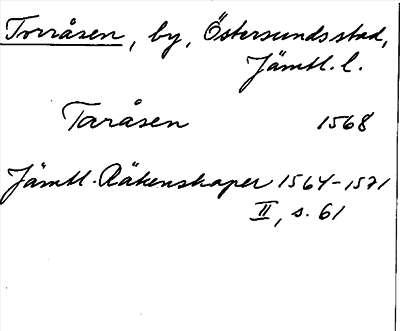 Torråsen, by, Östersunds stad,
Jämtl. l.
Taråsen 1568
Jämtl. Räkenskaper 1564-1571
II, s. 61